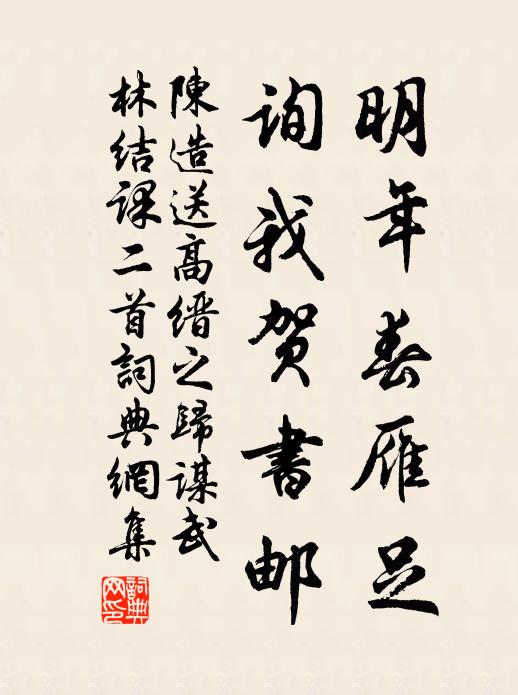 明年春雁足
詢我贺書邮
陳造送高缙之歸谋武
林结课二首詞典網集
詞典網印